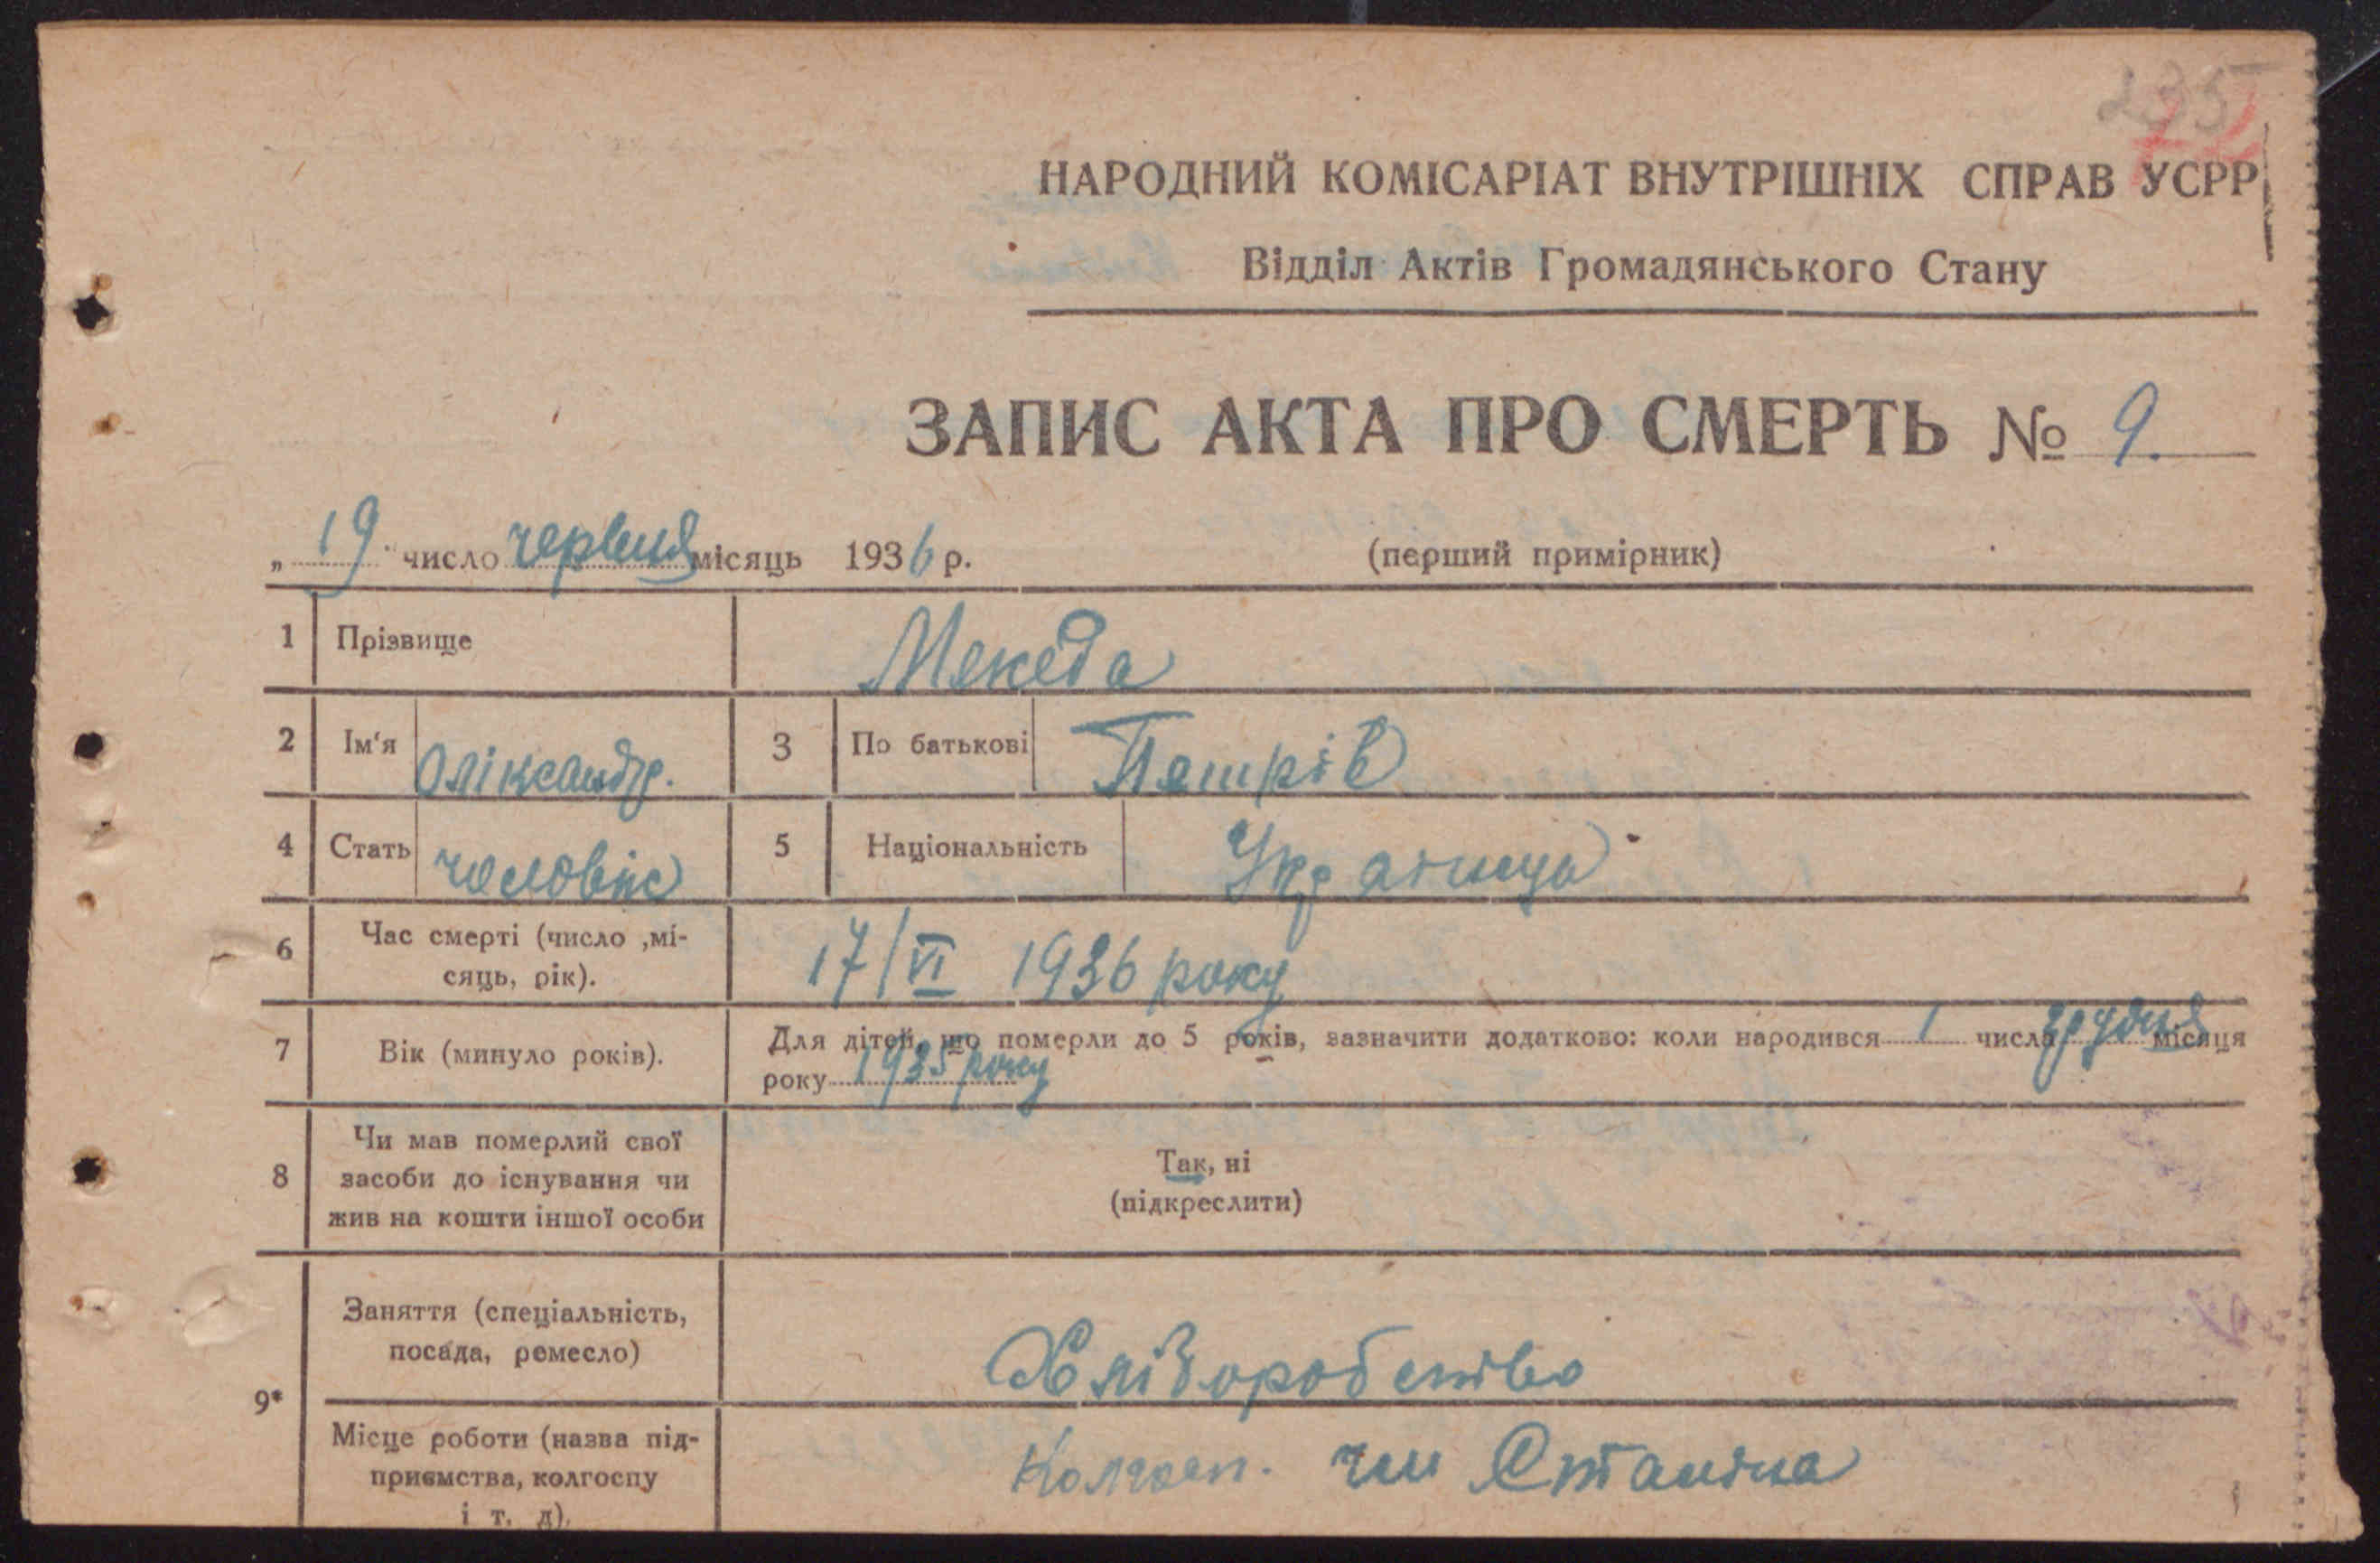 235
НАРОДНИЙ КОМІСАРІАТ ВНУТРІШНІХ СПРАВ УСРР
Відділ Актів Громадянського Стану
ЗАПИС АКТА ПРО СМЕРТЬ № 9.
„ 19 " число червня місяць 1936 р. (перший примірник)
1 Прізвище Мекеда
2 Ім'я Оліксандр. 3 По батькові Петрів
4 Стать чоловік 5 Національність
6 Час смерті (число ,мі-
сяць, рік). 17/VI 1936 року
7 Вік (минуло років). Для дітей, що померли до 5 років, зазначити додатково: коли народився 1 числа грудня місяця
року 1935 року
8 Чи мав померлий свої
засоби до існування чи
жив на кошти іншої особи
Так, ні
(підкреслити)
9*
Заняття (спеціальність,
посада, ремесло) Хліборобство
Місце роботи (назва під-
приємства, колгоспу
і т. д). Колгосп.